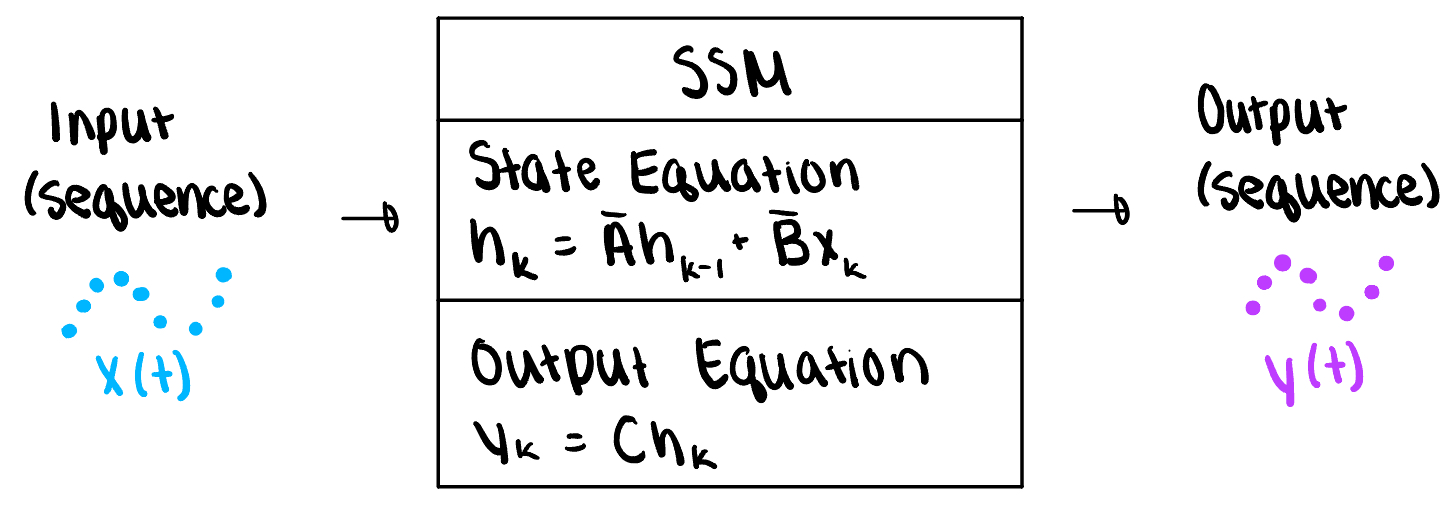 Input
(sequence)
x(t)
SSM
State Equation
h_k = Āh_{k-1} + B̄x_k
Output Equation
y_k = Ch_k
Output
(sequence)
y(t)